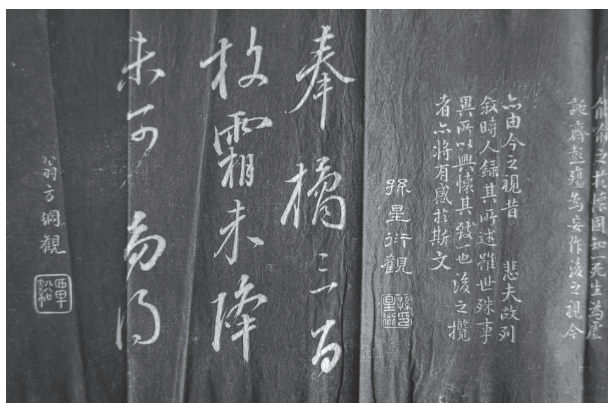 能喻之於懷固知一死生為虛
誕齊彭殤為妄作後之視今
亦由今之視昔 悲夫故列
敘時人錄其所述雖世殊事
異所以興懷其致一也後之攬
者亦將有感於斯文
孫星衍觀
奉橘三百
枚霜未降
未可多得
翁方綱觀
覃谿